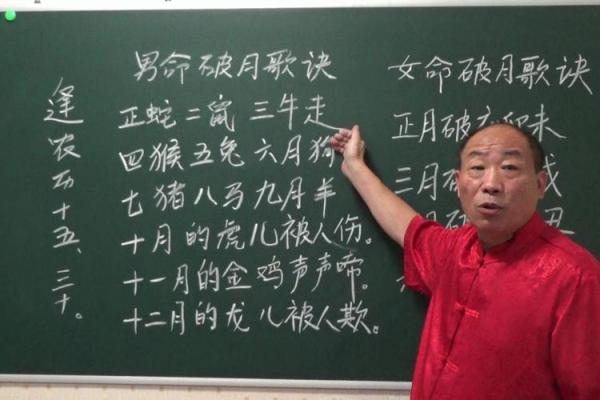 男命破月歌诀
正蛇二鼠三牛走
四猴五兔六月狗
七猪八马九月羊
十月的虎儿被人伤。
十一月的金鸡声声啼。
十二月的龙儿被人欺。
逢农历十五、三十。
女命破月歌诀
正月破 未
三月破 戌
丑